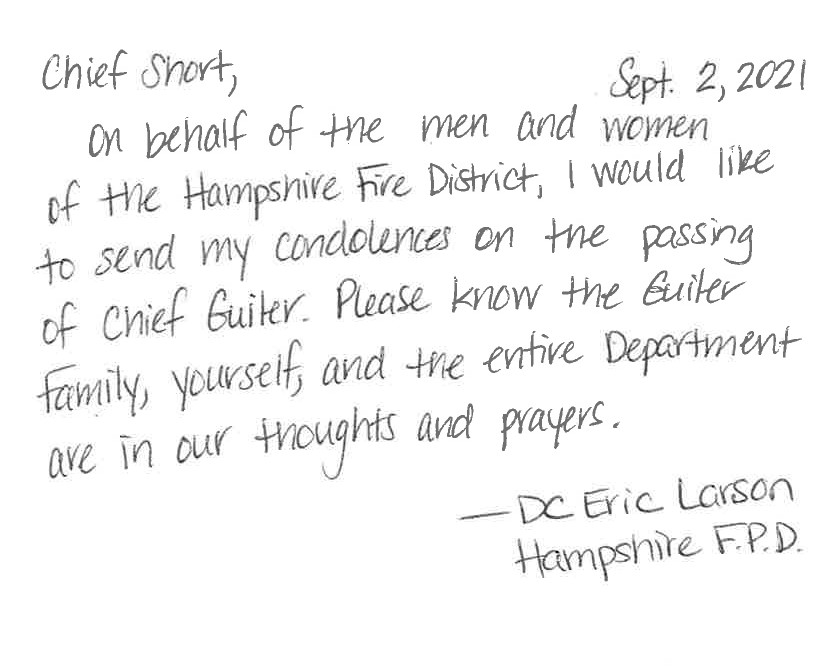 Chief Short,
Sept. 2, 2021
On behalf of the men and women
of the Hampshire Fire District, I would like
to send my condolences on the passing
of Chief Guiler. Please know the Guiler
family, yourself, and the entire Department
are in our thoughts and prayers.
—DC Eric Larson
Hampshire F.P.D.